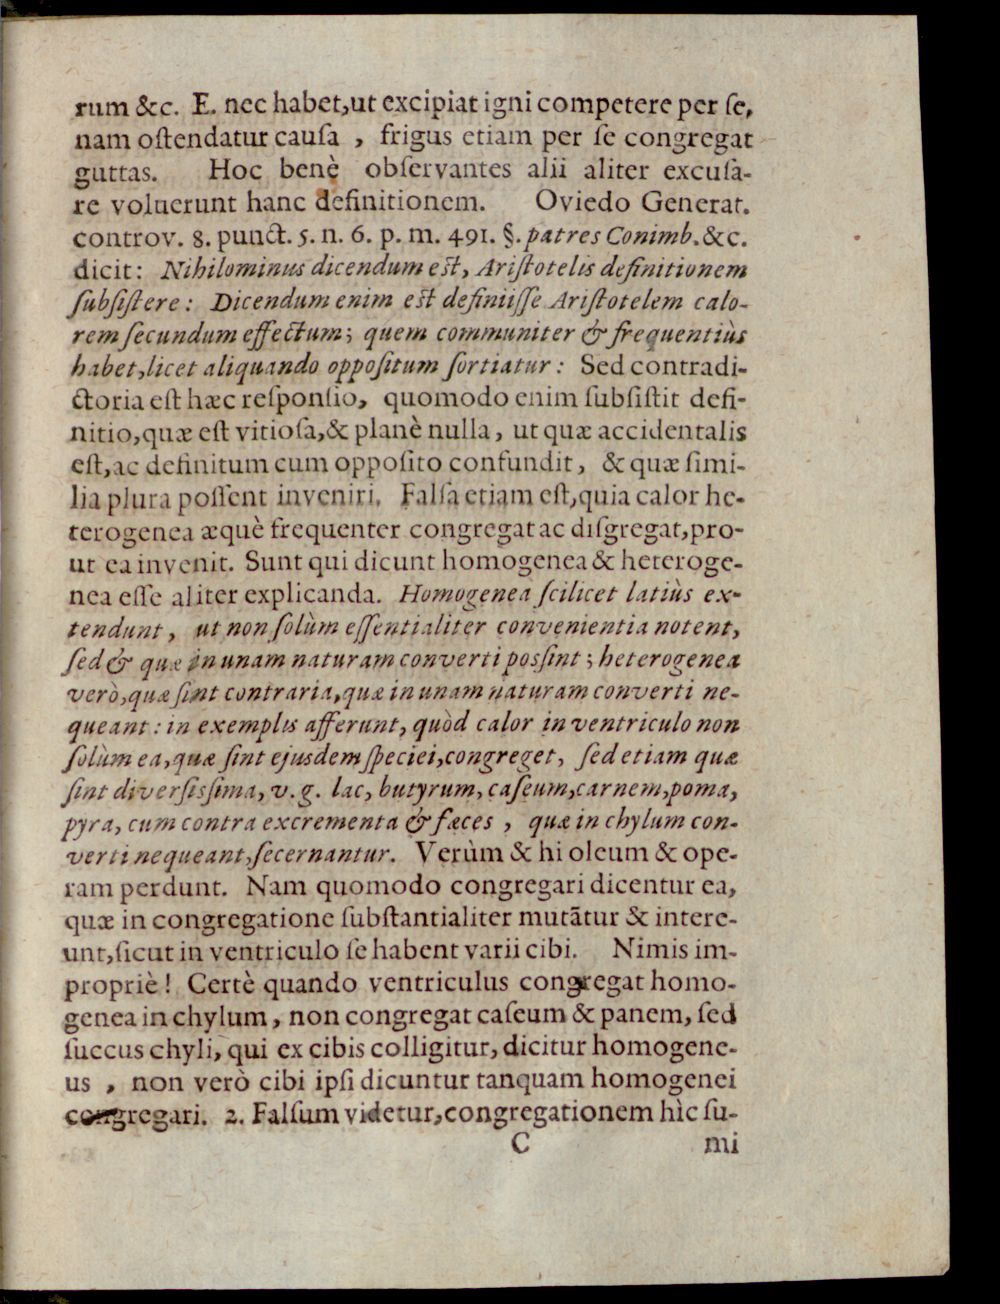 rum &c. E. nec habet,ut excipiat igni competere per ſe,
nam oſtendatur cauſa , frigus etiam per ſe congregat
guttas. Hoc benè obſervantes alii aliter excuſa-
re voluerunt hanc definitionem. Oviedo Generat.
controv. 8. punct. 5. n. 6. p. m. 491. §. patres Conimb. &c.
dicit: Nihilominus dicendum eſt, Ariſtotelis definitionem
ſubſiſtere: Dicendum enim eſt definiiſſe Ariſtotelem calo-
rem ſecundum effectum; quem communiter & frequentiùs
habet,licet aliquando oppoſitum ſortiatur: Sed contradi-
ctoria eſt hæc reſponſio, quomodo enim ſubſiſtit defi-
nitio,quæ eſt vitioſa,& planè nulla, ut quæ accidentalis
eſt,ac definitum cum oppoſito confundit, & quæ ſimi-
lia plura poſſent inveniri. Falſa etiam eſt,quia calor he-
terogenea æquè frequenter congregat ac diſgregat,pro-
ut ea invenit. Sunt qui dicunt homogenea & heteroge-
nea eſſe aliter explicanda. Homogenea ſcilicet latiùs ex-
tendunt, ut non ſolùm eſſentialiter convenientia notent,
ſed & quæ in unam naturam converti poſſint; heterogenea
verò,quæ ſint contraria,quæ in unam naturam converti ne-
queant: in exemplis afferunt, quòd calor in ventriculo non
ſolùm ea,quæ ſint ejusdem ſpeciei,congreget, ſed etiam quæ
ſint diverſisſima, v.g. lac, butyrum, caſeum,carnem,poma,
pyra, cum contra excrementa & fæces , quæ in chylum con-
verti nequeant,ſecernantur. Verùm & hi oleum & ope-
ram perdunt. Nam quomodo congregari dicentur ea,
quæ in congregatione ſubſtantialiter mutãtur & intere-
unt,ſicut in ventriculo ſe habent varii cibi. Nimis im-
propriè! Certè quando ventriculus congregat homo-
genea in chylum, non congregat caſeum & panem, ſed
ſuccus chyli, qui ex cibis colligitur, dicitur homogene-
us , non verò cibi ipſi dicuntur tanquam homogenei
congregari. 2. Falſum videtur,congregationem hìc ſu-
C mi